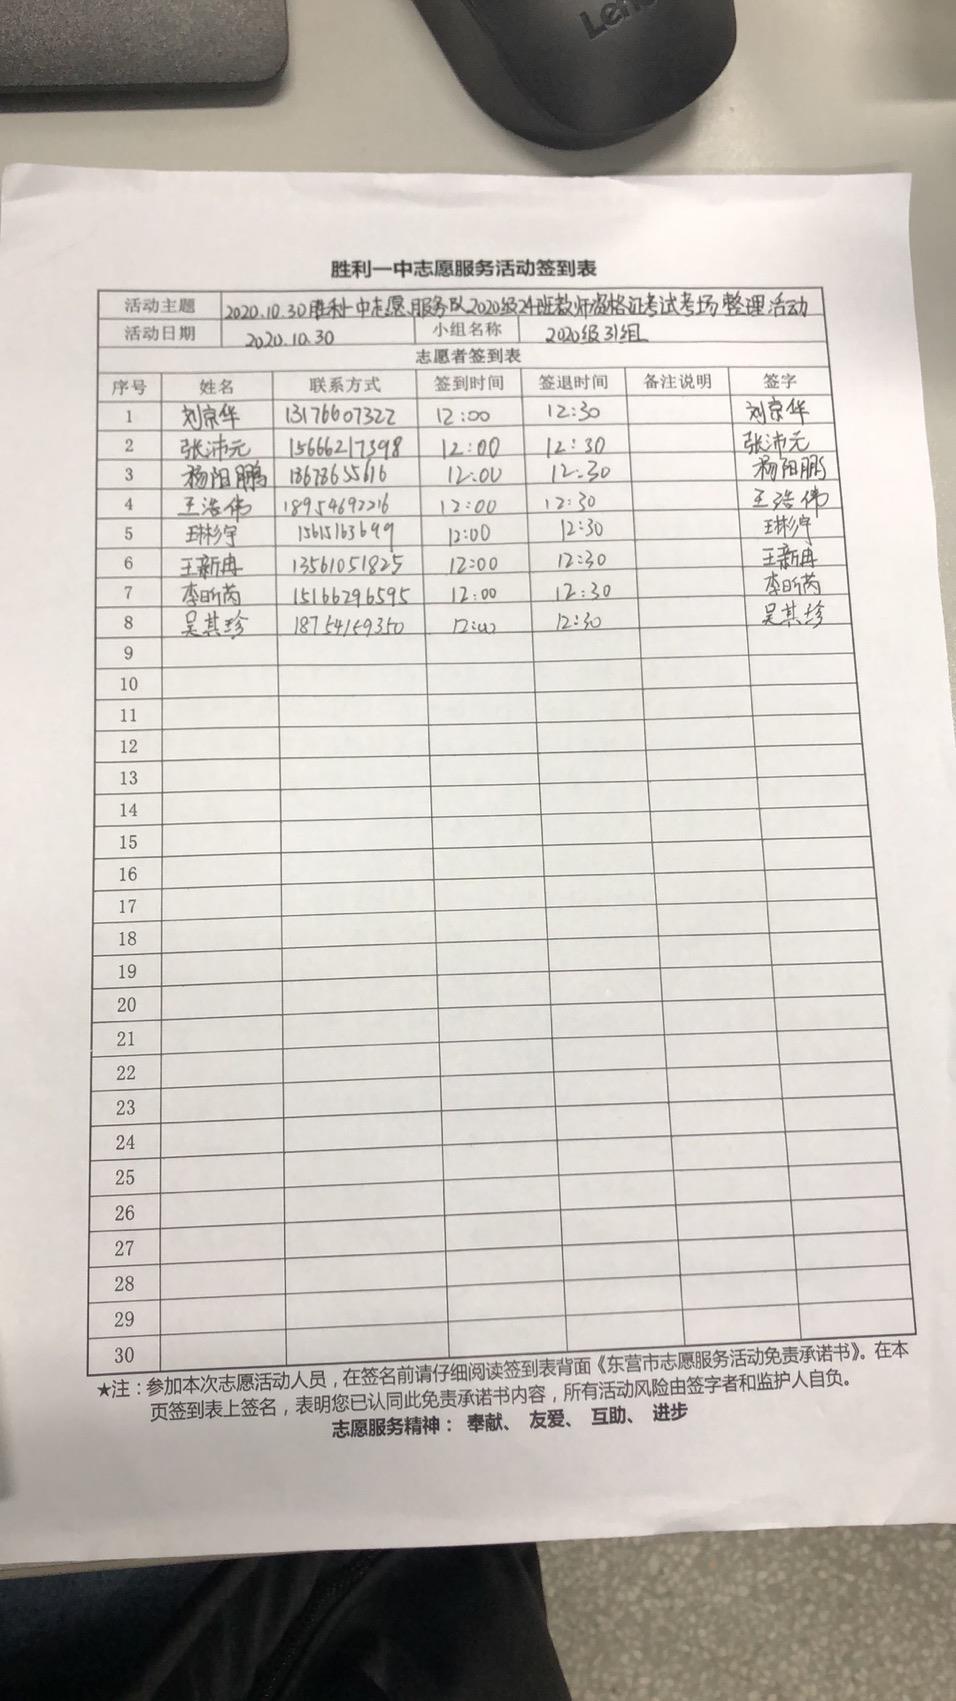 胜利一中志愿服务活动签到表
活动主题 2020.10.30胜利一中志愿服务队2020级24班教师资格证考试考场整理活动
活动日期 2020.10.30 小组名称 2020级31组
志愿者签到表
序号 姓名 联系方式 签到时间 签退时间 备注说明 签字
1 刘京华 13176607322 12:00 12:30 刘京华
2 张沛元 15666217398 12:00 12:30 张沛元
3 杨阳鹏 12:00 12:30 杨阳鹏
4 王浩伟 18954692216 12:00 12:30 王浩伟
5 15615163699 12:00 12:30
6 王新冉 13561051825 12:00 12:30 王新冉
7 李昕芮 15166296595 12:00 12:30 李昕芮
8 吴其珍 18754159350 12:00 12:30 吴其珍
9
10
11
12
13
14
15
16
17
18
19
20
21
22
23
24
25
26
27
28
29
30
★注：参加本次志愿活动人员，在签名前请仔细阅读签到表背面《东营市志愿服务活动免责承诺书》。在本
页签到表上签名，表明您已认同此免责承诺书内容，所有活动风险由签字者和监护人自负。
志愿服务精神： 奉献、 友爱、 互助、 进步